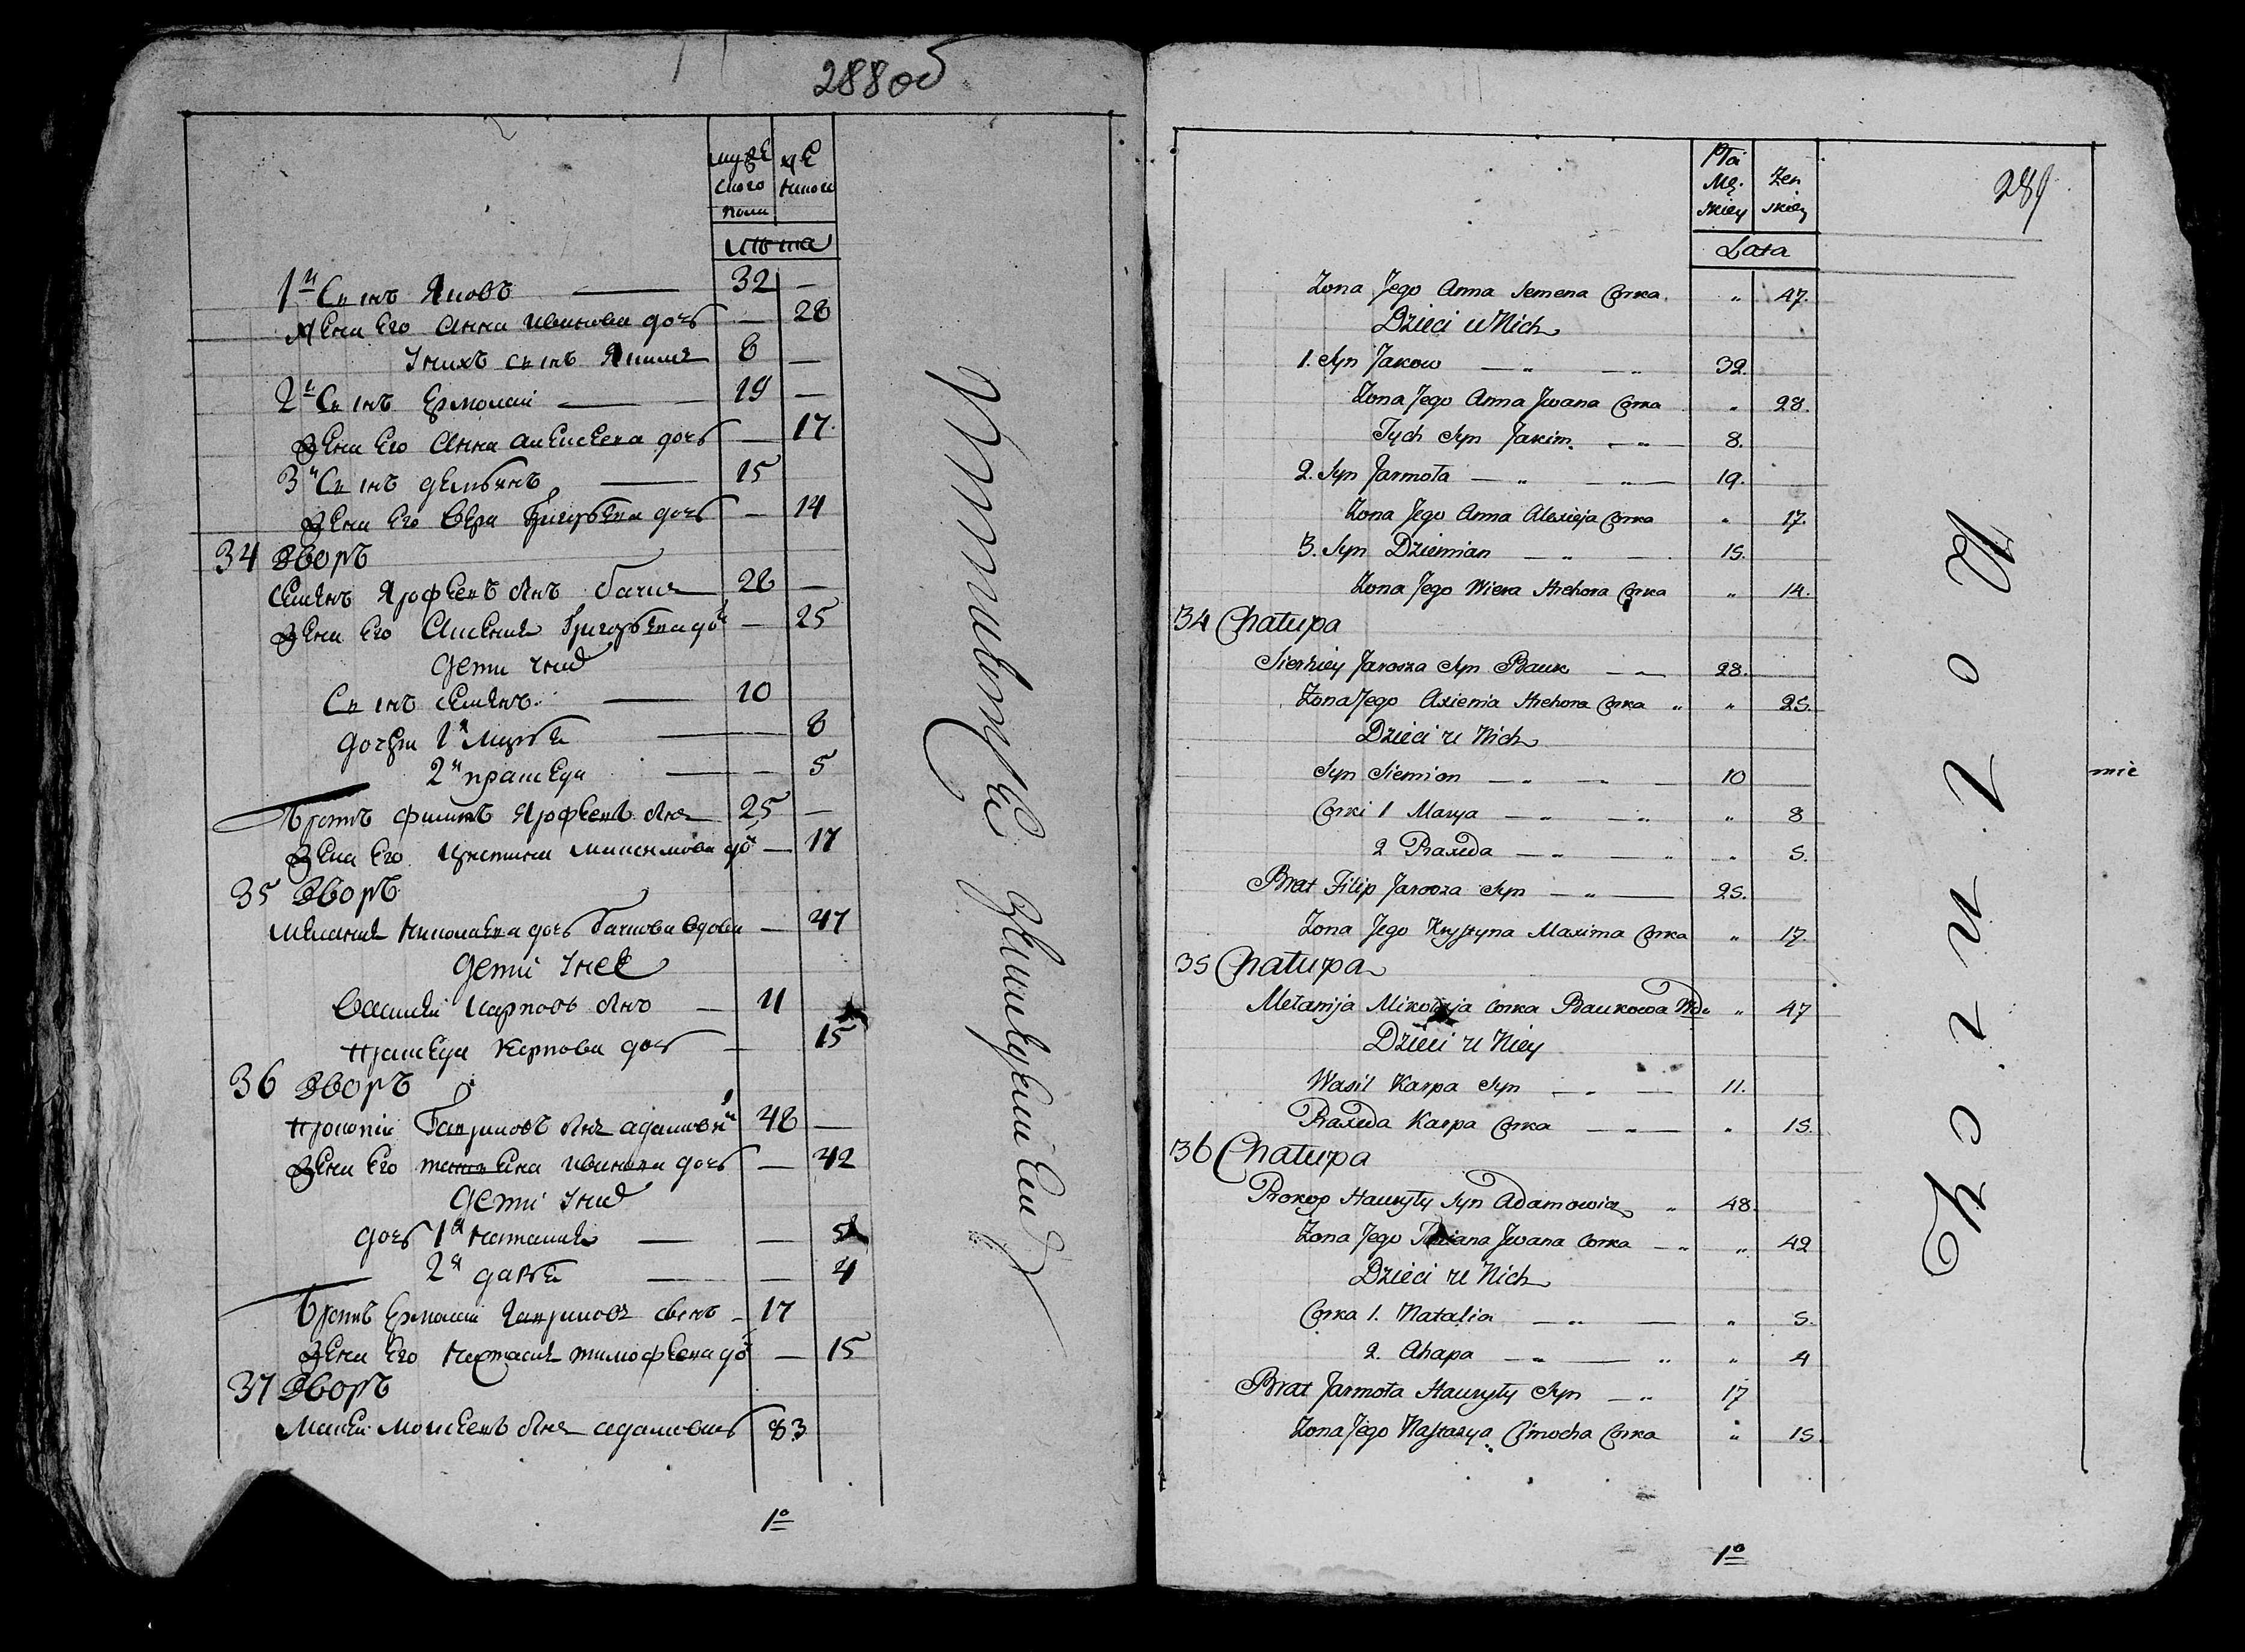 288об
мужескаго пола
женскаго
лѣта
1й Сынъ Яковъ — 32 —
жена Его Анна Иванова дочь — 28
У нихъ сынъ Якимъ 8 —
2й Сынъ Ермолай — 19 —
жена Его Анна Алексеева дочь — 17
3й Сынъ демьянъ — 15
жена Его Вера Григорьева дочь — 14
34 Дворъ
Ярофеевъ снъ 28 —
жена Его Аксения Григорьева дочь — 25
дети у нихъ
Сынъ семенъ — 10
дочери 1я Марья — 8
2я праскеда — 5
братъ филипъ Ярофеевъ снъ 25 —
жена Его Кристина Максимова до — 17
35 Дворъ
мелания николаева дочь бачкова вдова — 47
дети у нее
Василей Карповъ снъ — 11
праскеда Карпова доч — 15
36 Дворъ
прокопий Гаврилов снъ адамович 48 —
жена Его татьяна иванова дочь — 42
дети у них
дочь 1я наталия — 5
2я — 4
братъ Ермолай Гаврилов сынъ — 17
жена Его настасия тимофеева до — 15
37 Дворъ
Мосеевъ снъ адамович 83
1o
289
Płci Mę.skiey
Żenskiey
Lata
Żona Jego Anna Semena Corka „ 47.
Dzieci u Nich
1. Syn Jakow — „ — „ 32.
Żona Jego Anna Jwana Corka „ 28.
Tych Syn Jakim — „ — 8.
2. Syn Jarmoła — „ — „ — 19.
Żona Jego Anna Alexieja Corka „ 17.
3. Syn Dziemian — „ — 15.
Żona Jego Wiera Hrehora Corka „ 14.
34 Chałupa
Sierhiey Jarosza Syn Baczk — „ — 28.
Żona Jego Axienia Hrehora Corka „ „ 25.
Dzieci u Nich
Syn Siemion — „ — „ — 10
Corki 1 Marya — „ — „ „ 8
2 Praxeda — „ — „ „ 5.
Brat Filip Jarosza Syn — „ — 25.
Żona Jego Krystyna Maxima Corka „ 17.
35 Chałupa
Mełanija Mikołaja Corka Baczkowa Wd. „ 47
Dzieci u Niey
Wasil Karpa Syn — „ — 11.
Praxeda Karpa Corka — „ — „ 15.
36 Chałupa
Prokop Hauryły Syn Adamowicz „ 48.
Żona Jego Taciana Jwana Corka — „ „ 42
Dzieci u Nich
Corka 1. Natalia — „ — „ 5.
2. Ahapa — „ — „ „ 4
Brat Jarmoła Hauryły Syn — „ 17
Żona Jego Nastazya Cimocha Corka „ 15.
1o